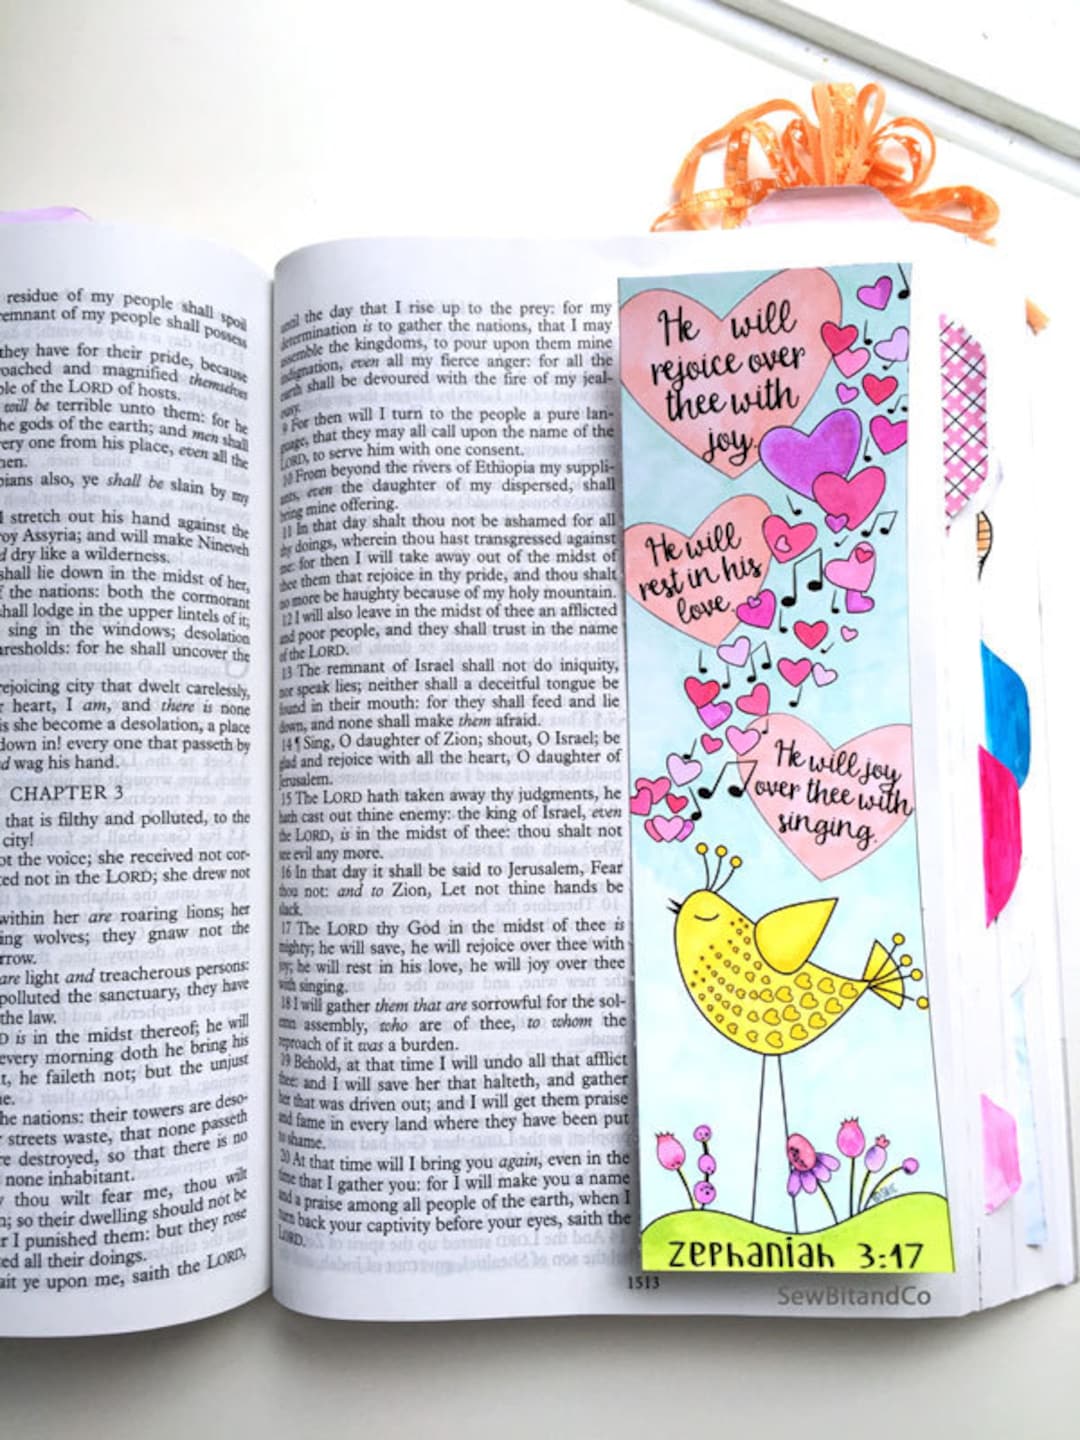 residue of my people shall spoil
remnant of my people shall possess
they have for their pride, because
and magnified themselves
of the LORD of hosts.
will be terrible unto them: for he
the gods of the earth; and men shall
every one from his place, even all the
also, ye shall be slain by my
stretch out his hand against the
Assyria; and will make Nineveh
dry like a wilderness.
shall lie down in the midst of her,
the nations: both the cormorant
shall lodge in the upper lintels of it;
sing in the windows; desolation
for he shall uncover the
rejoicing city that dwelt carelessly,
heart, I am, and there is none
is she become a desolation, a place
down in! every one that passeth by
wag his hand.
CHAPTER 3
that is filthy and polluted, to the
city!
the voice; she received not cor-
not in the LORD; she drew not
within her are roaring lions; her
wolves; they gnaw not the
are light and treacherous persons:
polluted the sanctuary, they have
the law.
is in the midst thereof; he will
every morning doth he bring his
he faileth not; but the unjust
the nations: their towers are deso-
streets waste, that none passeth
destroyed, so that there is no
none inhabitant.
thou wilt fear me, thou wilt
so their dwelling should not be
I punished them: but they rose
all their doings.
ye upon me, saith the LORD,
until the day that I rise up to the prey: for my
determination is to gather the nations, that I may
assemble the kingdoms, to pour upon them mine
indignation, even all my fierce anger: for all the
earth shall be devoured with the fire of my jeal-
ousy.
9 For then will I turn to the people a pure lan-
guage, that they may all call upon the name of the
LORD, to serve him with one consent.
10 From beyond the rivers of Ethiopia my suppli-
ants, even the daughter of my dispersed, shall
bring mine offering.
11 In that day shalt thou not be ashamed for all
thy doings, wherein thou hast transgressed against
me: for then I will take away out of the midst of
thee them that rejoice in thy pride, and thou shalt
no more be haughty because of my holy mountain.
12 I will also leave in the midst of thee an afflicted
and poor people, and they shall trust in the name
of the LORD.
13 The remnant of Israel shall not do iniquity,
nor speak lies; neither shall a deceitful tongue be
found in their mouth: for they shall feed and lie
down, and none shall make them afraid.
14 ¶ Sing, O daughter of Zion; shout, O Israel; be
glad and rejoice with all the heart, O daughter of
Jerusalem.
15 The LORD hath taken away thy judgments, he
hath cast out thine enemy: the king of Israel, even
the LORD, is in the midst of thee: thou shalt not
see evil any more.
16 In that day it shall be said to Jerusalem, Fear
thou not: and to Zion, Let not thine hands be
slack.
17 The LORD thy God in the midst of thee is
mighty; he will save, he will rejoice over thee with
joy; he will rest in his love, he will joy over thee
with singing.
18 I will gather them that are sorrowful for the sol-
emn assembly, who are of thee, to whom the
reproach of it was a burden.
19 Behold, at that time I will undo all that afflict
thee: and I will save her that halteth, and gather
her that was driven out; and I will get them praise
and fame in every land where they have been put
to shame.
20 At that time will I bring you again, even in the
time that I gather you: for I will make you a name
and a praise among all people of the earth, when I
turn back your captivity before your eyes, saith the
LORD.
1513
He will
rejoice over
thee with
joy.
He will
rest in his
love.
He will joy
over thee with
singing.
Zephaniah 3:17
SewBitandCo